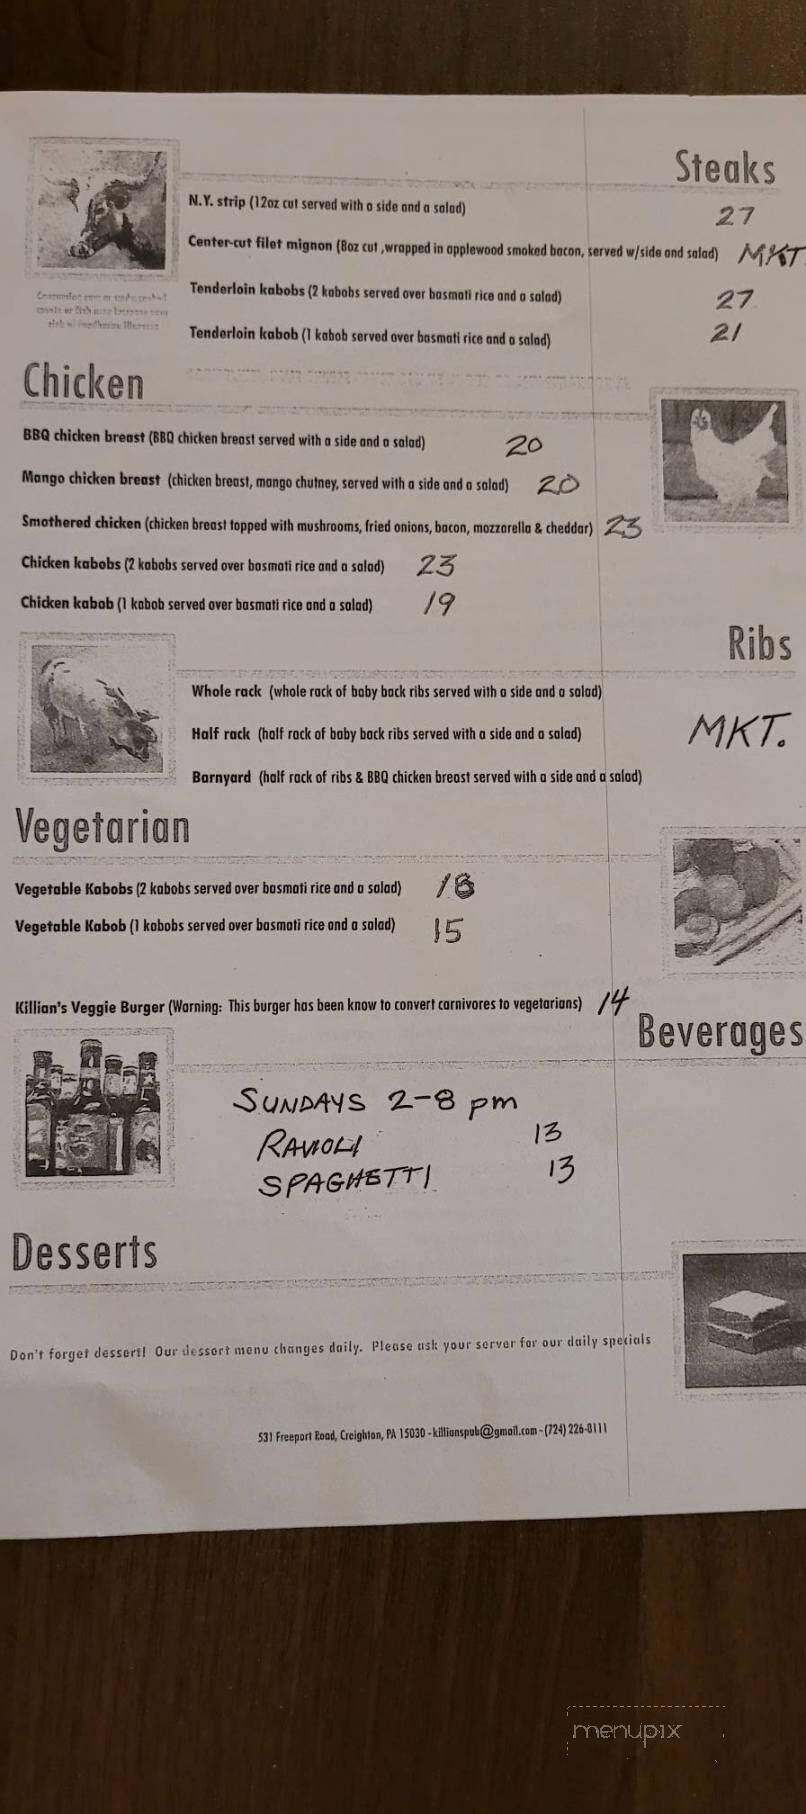 Steaks
N.Y. strip (12oz cut served with a side and a salad) 27
Center-cut filet mignon (8oz cut ,wrapped in applewood smoked bacon, served w/side and salad) MKT.
Tenderloin kabobs (2 kabobs served over basmati rice and a salad) 27
Tenderloin kabob (1 kabob served over basmati rice and a salad) 21
Chicken
BBQ chicken breast (BBQ chicken breast served with a side and a salad) 20
Mango chicken breast (chicken breast, mango chutney, served with a side and a salad) 20
Smothered chicken (chicken breast topped with mushrooms, fried onions, bacon, mozzarella & cheddar) 23
Chicken kabobs (2 kabobs served over basmati rice and a salad) 23
Chicken kabob (1 kabob served over basmati rice and a salad) 19
Ribs
Whole rack (whole rack of baby back ribs served with a side and a salad)
Half rack (half rack of baby back ribs served with a side and a salad) MKT.
Barnyard (half rack of ribs & BBQ chicken breast served with a side and a salad)
Vegetarian
Vegetable Kabobs (2 kabobs served over basmati rice and a salad) 18
Vegetable Kabob (1 kabobs served over basmati rice and a salad) 15
Killian's Veggie Burger (Warning: This burger has been know to convert carnivores to vegetarians) 14
Beverages
SUNDAYS 2-8 pm
RAVIOLI 13
SPAGHETTI 13
Desserts
Don't forget dessert! Our dessert menu changes daily. Please ask your server for our daily specials
531 Freeport Road, Creighton, PA 15030 - killianspub@gmail.com - (724) 226-8111
menupix